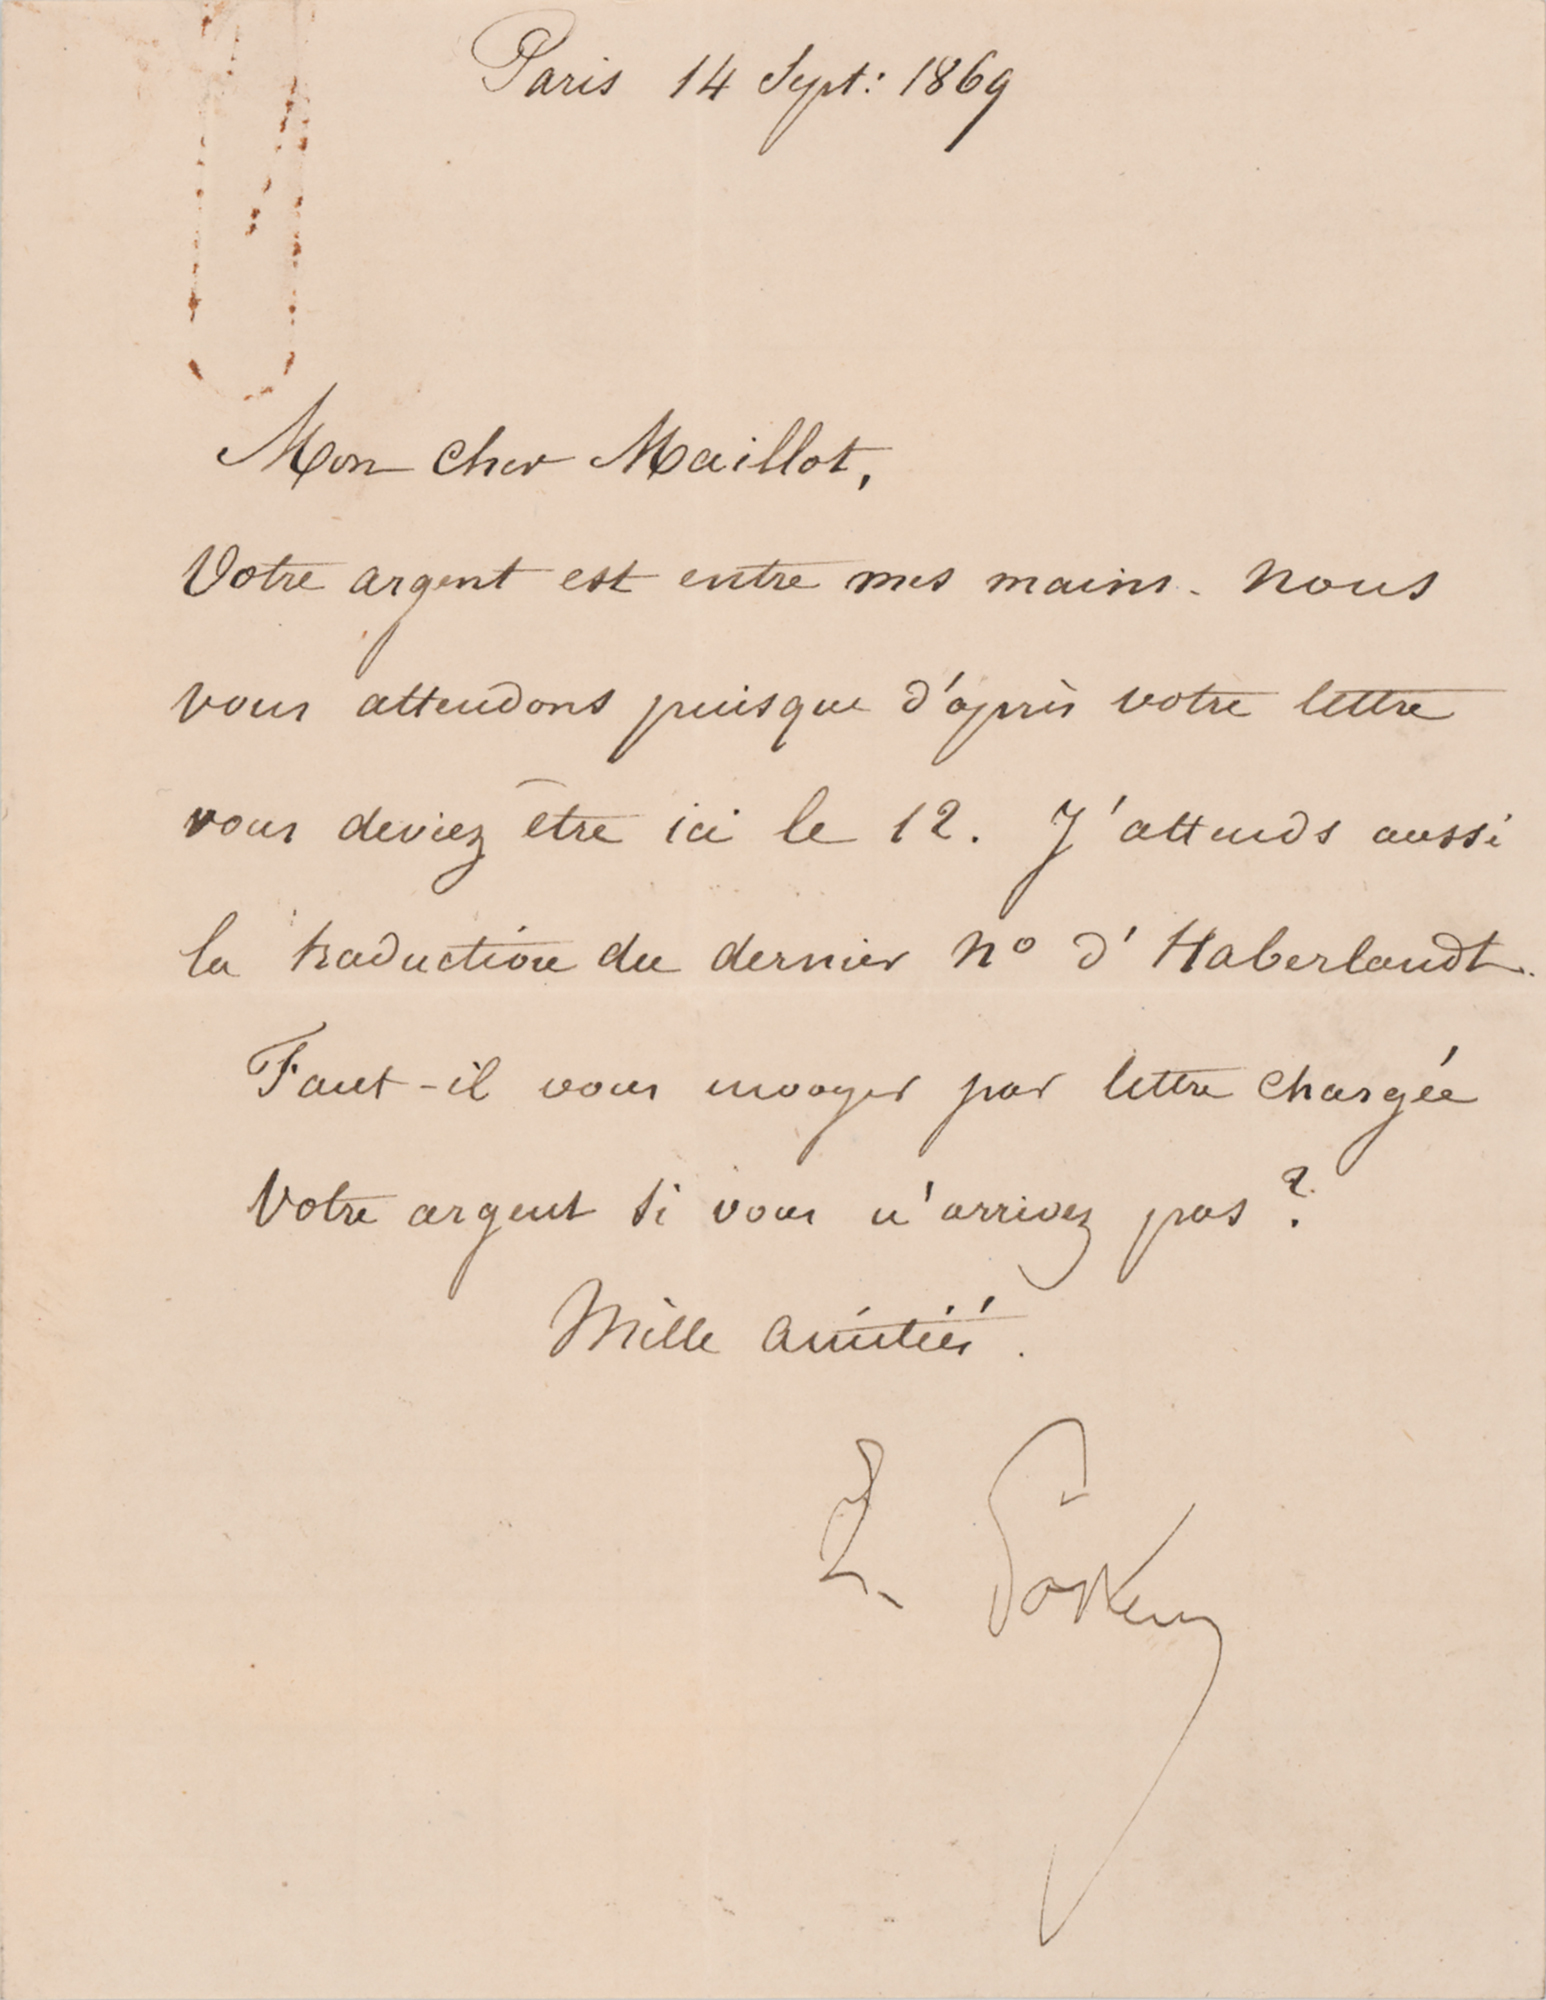 Paris 14 Sept: 1869
Mon cher Maillot,
Votre argent est entre mes mains. Nous
vous attendons puisque d'après votre lettre
vous deviez être ici le 12. J'attends aussi
la traduction du dernier No d'Haberlandt.
Faut-il vous envoyer par lettre chargée
votre argent si vous n'arrivez pas ?
Mille amitiés.
L. Pasteur